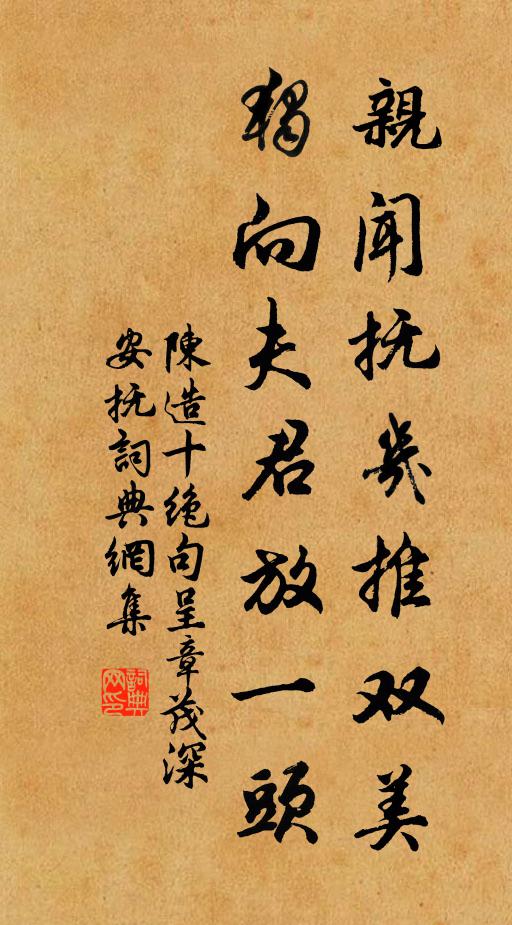 親闻抚卷推双美
独向夫君放一頭
陳造十绝句呈章茂深
安抚詞典網集
詞典网印